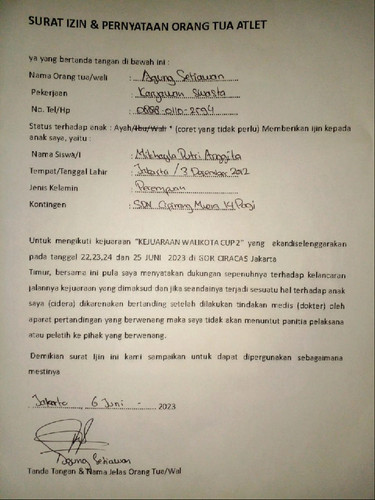 SURAT IZIN & PERNYATAAN ORANG TUA ATLET
ya yang bertanda tangan di bawah ini :
Nama Orang tua/wali : Agung Setiawan
Pekerjaan : Karyawan Swasta
No. Tel/Hp : 0888-0110-2594
Status terhadap anak : Ayah/Ibu/Wali * (coret yang tidak perlu) Memberikan Ijin kepada
anak saya, yaitu :
Nama Siswa/i : Mikhayla Putri Anggita
Tempat/Tanggal Lahir : Jakarta / 3 Desember 2012
Jenis Kelamin : Perempuan
Kontingen : SDN Cipinang Muara 14 Pagi
Untuk mengikuti kejuaraan "KEJUARAAN WALIKOTA CUP 2" yang ekandiselenggarakan
pada tanggal 22,23,24 dan 25 JUNI 2023 di GOR CIRACAS Jakarta
Timur, bersama ini pula saya menyatakan dukungan sepenuhnya terhadap kelancaran
jalannya kejuaraan yang dimaksud dan jika seandainya terjadi sesuatu hal terhadap anak
saya (cidera) dikarenakan bertanding setelah dilakukan tindakan medis (dokter) oleh
aparat pertandingan yang berwenang maka saya tidak akan menuntut panitia pelaksana
atau pelatih ke pihak yang berwenang.
Demikian surat Ijin ini kami sampaikan untuk dapat dipergunakan sebagaimana
mestinya
Jakarta, 6 Juni - 2023
Agung Setiawan
Tanda Tangan & Nama Jelas Orang Tua/Wal